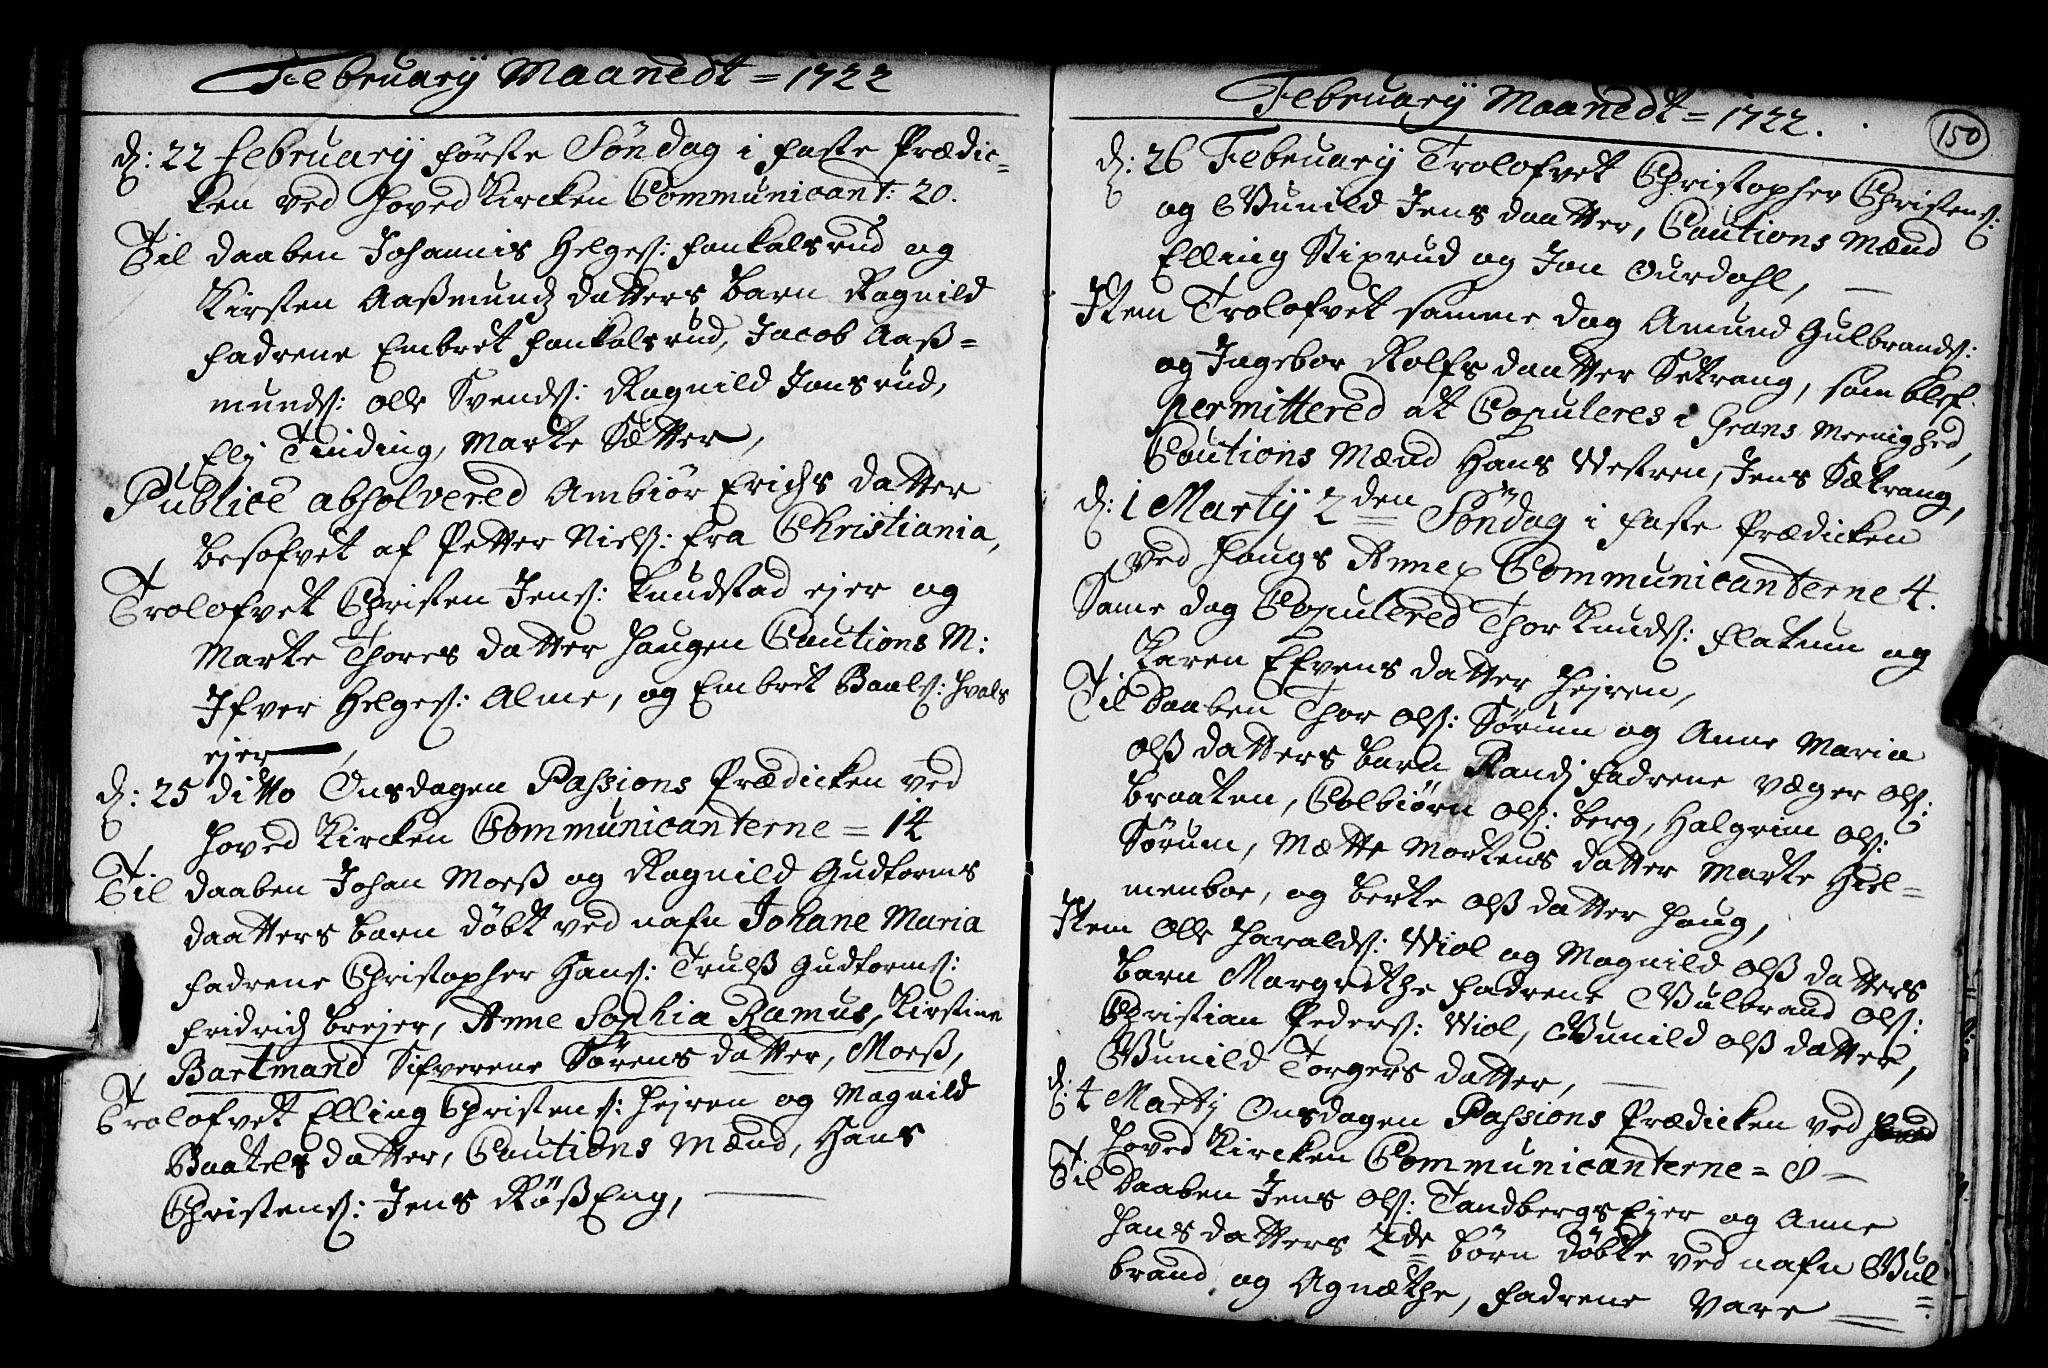 Februarij Maanedt = 1722
d: 22 februarij første Søndag i faste Prædic=
ken ved Hoved Kircken Communicant: 20.
Til daaben Johannis Helges: fankalsrud og
Kirsten Aaßmunds datters barn Ragnild
fadrene Embret fankalsrud, Jacob Aaß=
munds: Olle Svends: Ragnild Jonsrud,
Elj Tinding, Marte Sætter,
Publicè absolvered Ambiør Erichs datter
besofvet af Petter Niels: fra Christiania,
Trolofvet Christen Jens: Knudstad ejer og
Marte Thores datter Haugen Cautions M:
Ifver Helges: Alme, og Embret Baals: Hvals
ejer,
d: 25 ditto Onsdagen Passions Prædicken ved
Hoved Kircken Communicanterne = 14
Til daaben Johan Moeß og Ragnild Gudtorms
daatters barn døbt ved nafn Johane Maria
fadrene Christopher Hans: Trulß Gudtorms:
fridrich brejer, Anne Sophia Ramus, Kirstine
Bartmand Sifverene Sørens datter, Moeß,
Trolofvet Elling Christens: Hejren og Magnild
Baatels datter, Cautions Mænd, Hans
Christens: Jens RøßEng,
Februarij Maanedt = 1722.
150
d: 26 Februarij Trolofvet Christopher Christens:
og Gunild Jens daatter, Cautions Mænd
Elling Stixrud og Jon Ourdahl,
Item Trolofvet samme dag Amund Gulbrands:
og Ingebor Rolfs daatter Sætrang, som blef
permittered at Copuleres i Grans Meenighed,
Cautions Mænd Hans Vestern, Jens Sætrang,
d: 1 Martij 2den Søndag i faste Prædicken
ved Haugs Annex Communicanterne 4.
Same dag Copulered Thor Knuds: flatum og
Karen Efvens datter Hejren,
Til Daaben Thor Ols: Sørum og Anne Maria
Olß datters barn Randj fadrene Væger Ols:
braaten, Colbiørn Ols: berg, Halgrim Ols:
Sørum, Mætte Mortens datter Marte Hiel=
menboe, og berte Olß datter Haug,
Item Olle Haralds: Viol og Magnild Olß datters
barn Margrethe fadrene Gulbrand Ols:
Christian Peders: Viol, Gunild Olß datter,
Gunild Torgers datter,
d: 4 Martij Onsdagen Passions Prædicken ved
Hoved Kircken Communicanterne = 8
Til Daaben Jens Ols: Tandbergs Ejer og Anne
Hans datters 2de børn døbte ved nafn Gul
brand, og Agnæthe, fadrene Vare =